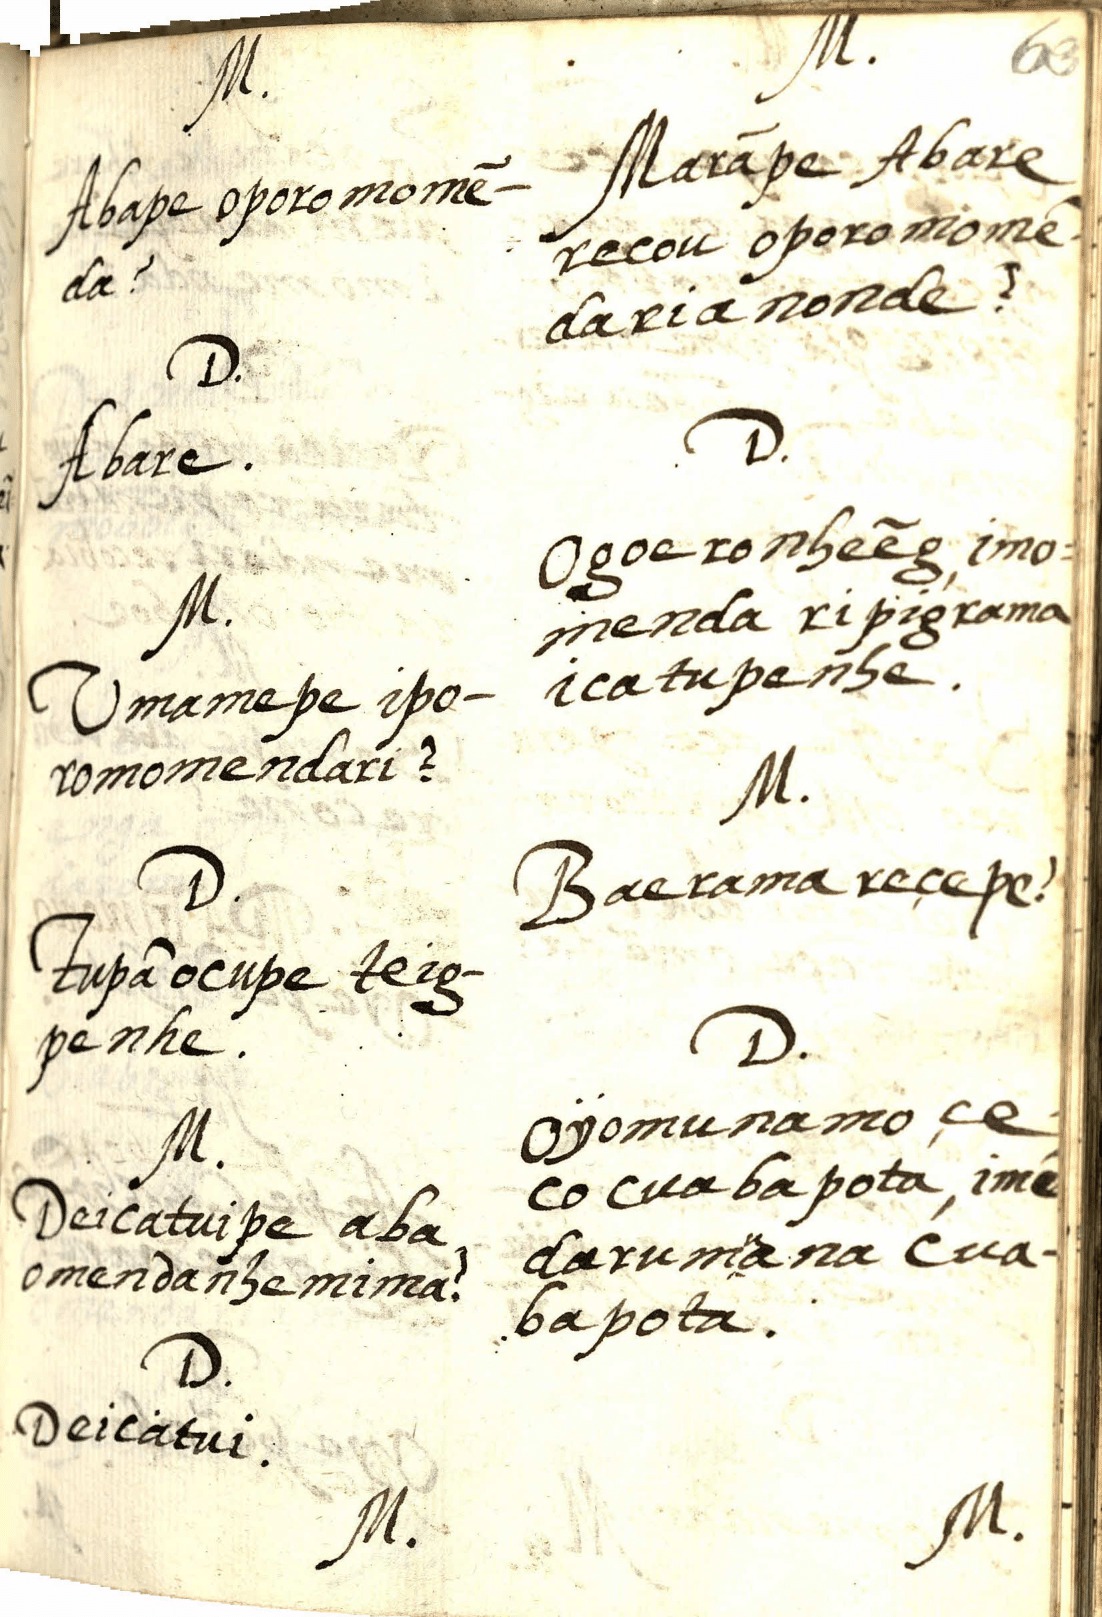 M.
Abape oporomomẽ-
da?
D.
Abare.
M.
Vmamepe ipo-
romomendari?
D.
Tupã ocupe teig-
penhe.
M.
Deicatuipe aba,
omendanhemima?
D.
Deicatui.
M.
M.
Marãpe Abare
recou oporomomẽ-
darianonde?
D.
Ogoeronheẽg, imo-
menda ripigrama
icatupenhe.
M.
Baerama reçepe?
D.
Oÿomunamo çe-
co cuabapota, imẽ
darumãna cua-
bapota.
M.